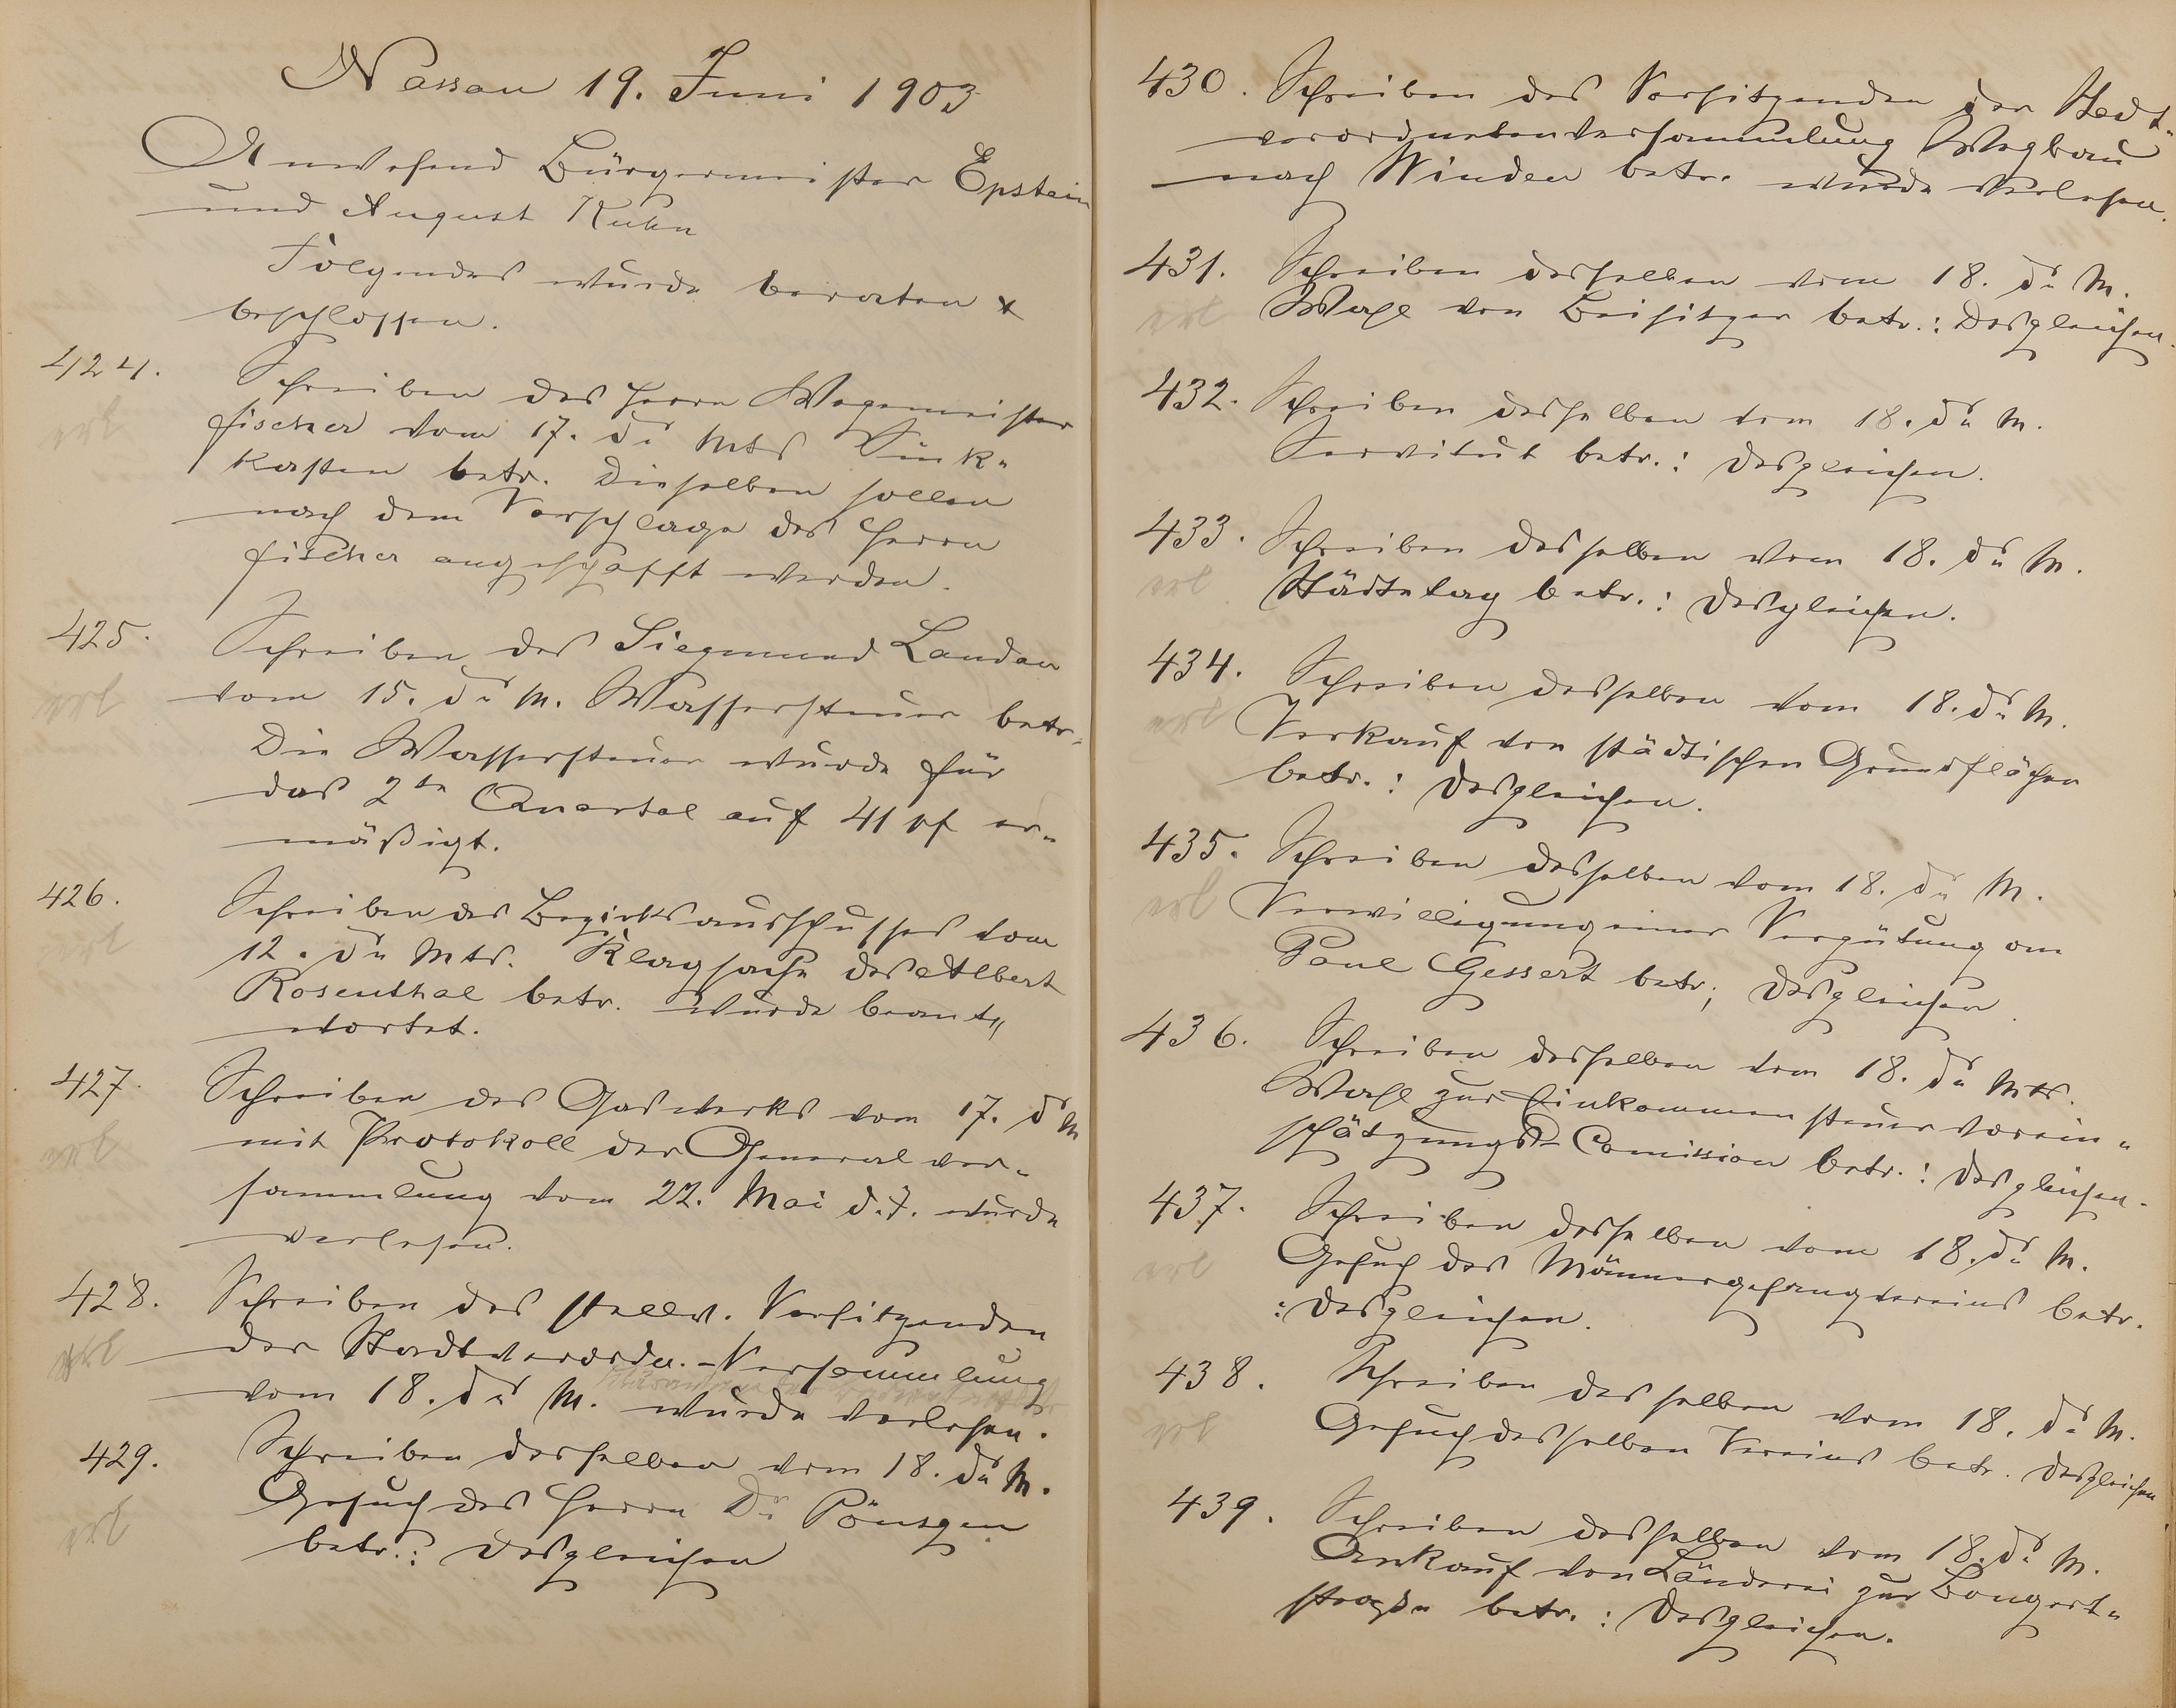 Nassau 19. Juni 1903
Anwesend Bürgermeister Epstein
und August Kuhn
Folgendes wurde beraten &
beschlossen.
424.
erl
Schreiben des Herrn Wegemeister
Fischer vom 17. ds Mts Sink-
kasten betr. Dieselben sollen
nach dem Vorschlage des Herrn
Fischer angeschafft werden.
425.
erl
Schreiben des Siegmund Landau
vom 15. ds M. Wassersteuer betr.
Die Wassersteuer wurde für
das 2te Quartal auf 41 Pf er-
mäßigt.
426.
erl
Schreiben des Bezirksausschusses vom
12. ds Mts. Klagsache des Albert
Rosenthal betr. wurde beant-
wortet.
427.
erl
Schreiben des Gaswerks vom 17. ds M
mit Protokoll der Generalver-
sammlung vom 22. Mai d.J. wurde
verlesen.
428.
erl
Schreiben des stellv. Vorsitzenden
der Stadtverordn.-Versammlung
vom 18. ds M. wurde verlesen.
429.
erl
Schreiben desselben vom 18. ds M.
Gesuch des Herrn Dr Pönsgen
betr.: desgleichen
430. Schreiben des Vorsitzenden der Stadt-
verordnetenversammlung Wegbau
nach Winden betr. wurde verlesen.
431. Schreiben desselben vom 18. ds M.
erl Wahl von Beisitzer betr.: desgleichen.
432. Schreiben desselben vom 18. ds M.
Servitut betr.: desgleichen.
433. Schreiben desselben vom 18. ds M.
erl Städtetag betr.: desgleichen.
434. Schreiben desselben vom 18. ds M.
erl Verkauf von städtischen Grundflächen
betr.: desgleichen.
435. Schreiben desselben vom 18. ds M.
erl Verwilligung einer Vergütung an
Paul Gessert betr; desgleichen.
436. Schreiben desselben vom 18. ds Mts.
Wahl zur Einkommensteuervorein-
schätzungs Comission betr.: desgleichen.
437. Schreiben desselben vom 18. ds M.
erl Gesuch des Männergesangvereins betr.
: desgleichen.
438. Schreiben desselben vom 18. ds M.
erl Gesuch desselben Vereins betr. desgleichen
439. Schreiben desselben vom 18. ds M.
Ankauf von Länderei zur Bongert-
straße betr.: desgleichen.